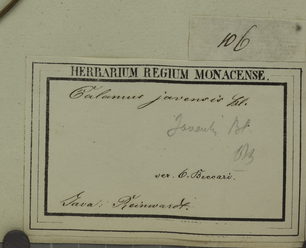 106
HERBARIUM REGIUM MONACENSE.
Calamus javensis Bl.
Javensis Bl.
scr. O. Beccari.
Java: Reinwardt.